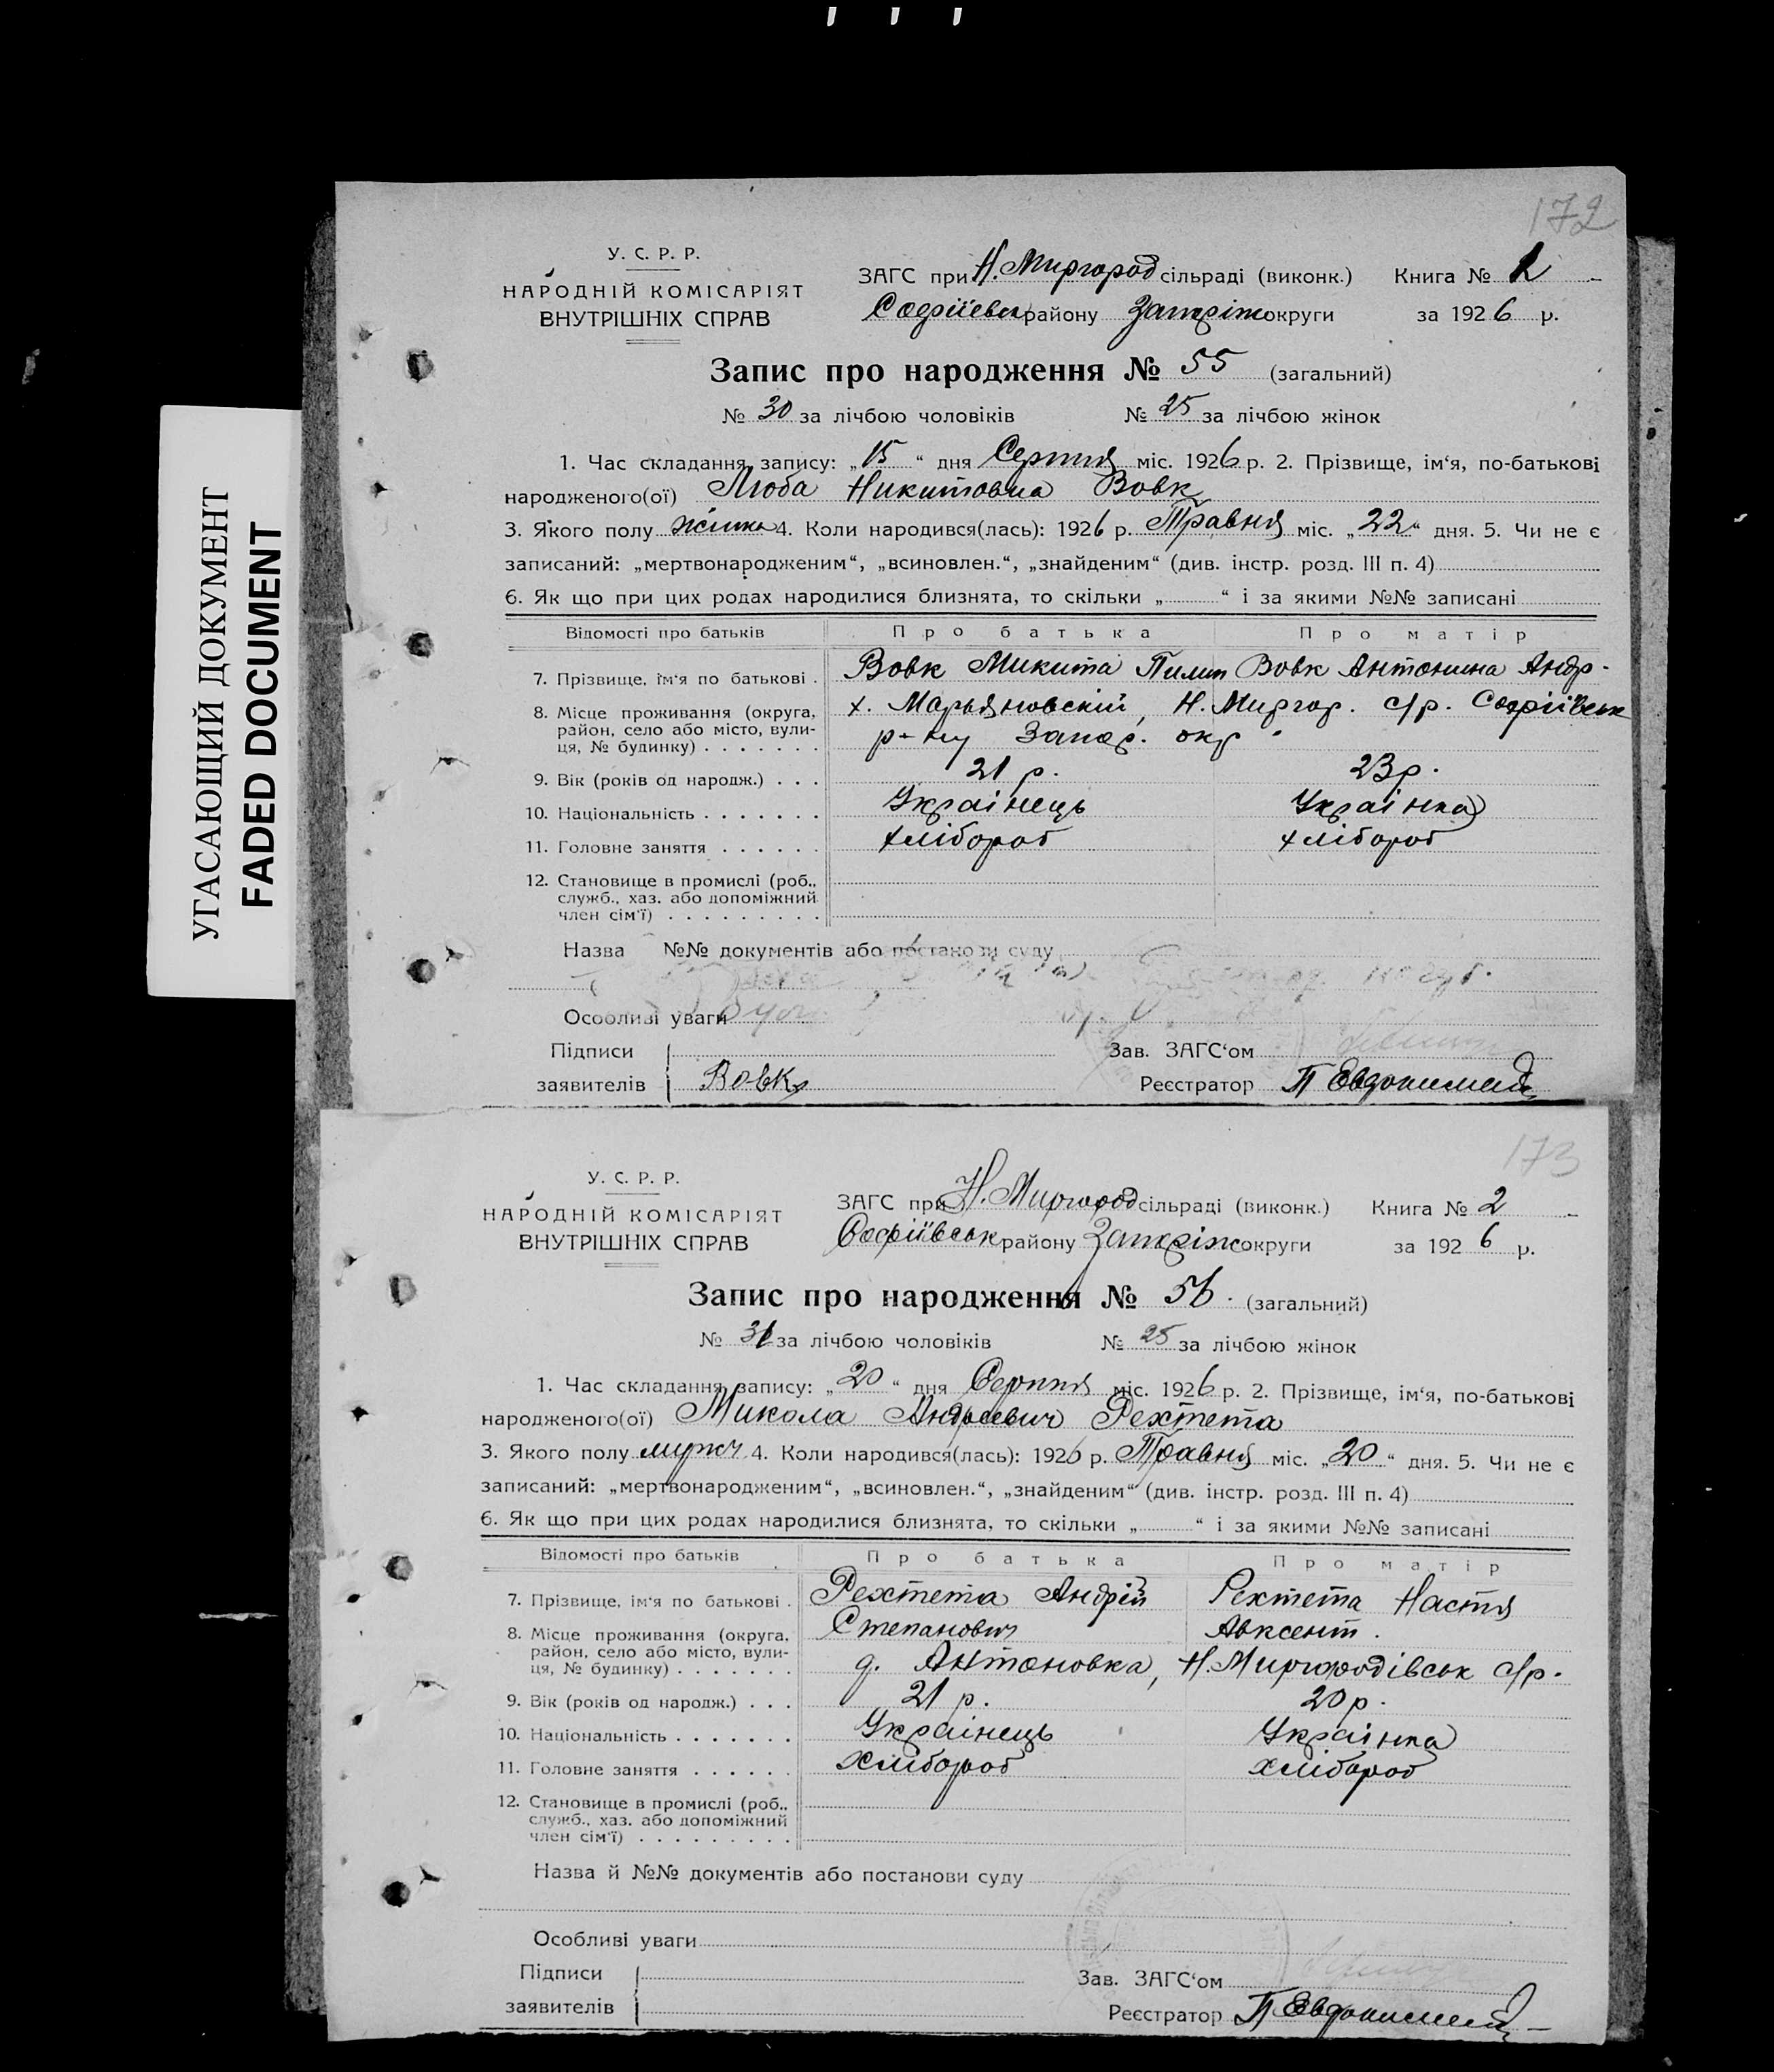 УГАСАЮЩИЙ ДОКУМЕНТ
FADED DOCUMENT
172
У. С. Р. Р.
НАРОДНІЙ КОМІСАРІЯТ
ВНУТРІШНІХ СПРАВ
ЗАГС при Н. Миргород сільраді (виконк.) Книга № 2
Софіївськ району Запоріж округи за 1926 р.
Запис про народження № 55 (загальний)
№ 30 за лічбою чоловіків № 25 за лічбою жінок
1. Час складання запису: „15“ дня Серпня міс. 1926 р. 2. Прізвище, ім‘я, по-батькові
народженого(ої) Люба Никитовна Вовк
3. Якого полу жінка 4. Коли народився(лась): 1926 р. Травня міс. „22“ дня. 5. Чи не є
записаний: „мертвонародженим“, „всиновлен.“, „знайденим“ (див. інстр. розд. III п. 4)
6. Як що при цих родах народилися близнята, то скільки „ “ і за якими №№ записані
Відомості про батьків Про батька Про матір
7. Прізвище, ім‘я по батькові . Вовк Микита Пилип Вовк Антонина Андр.
8. Місце проживання (округа, х. Марьяновскій, Н. Миргор. с/р. Софіївськ
район, село або місто, вули-
ця, № будинку) р-ну Запор. окр.
9. Вік (років од народж.) 21 р. 23 р.
10. Національність Українець Українка
11. Головне заняття хлібороб хлібороб
12. Становище в промислі (роб.,
служб., хаз. або допоміжний
член сім‘ї)
Назва №№ документів або постанови суду
Особливі уваги
Підписи Зав. ЗАГС‘ом
заявителів Вовк Реєстратор П Евдокимец
173
У. С. Р. Р.
НАРОДНІЙ КОМІСАРІЯТ
ВНУТРІШНІХ СПРАВ
ЗАГС при Н. Миргород сільраді (виконк.) Книга № 2
Софіївськ району Запоріж округи за 1926 р.
Запис про народження № 56. (загальний)
№ 31 за лічбою чоловіків № 25 за лічбою жінок
1. Час складання запису: „20“ дня Серпня міс. 1926 р. 2. Прізвище, ім‘я, по-батькові
народженого(ої) Микола Андреевич Рехтета
3. Якого полу мужч 4. Коли народився(лась): 1926 р. Травня міс. „20“ дня. 5. Чи не є
записаний: „мертвонародженим“, „всиновлен.“, „знайденим“ (див. інстр. розд. III п. 4)
6. Як що при цих родах народилися близнята, то скільки „ “ і за якими №№ записані
Відомості про батьків Про батька Про матір
7. Прізвище, ім‘я по батькові . Рехтета Андрій Рехтета Настя
8. Місце проживання (округа, Степанович Авксент.
район, село або місто, вули-
ця, № будинку) д. Антоновка, Н. Миргородівськ с/р.
9. Вік (років од народж.) 21 р. 20 р.
10. Національність Українець Українка
11. Головне заняття Хлібороб хлібороб
12. Становище в промислі (роб.,
служб., хаз. або допоміжний
член сім‘ї)
Назва й №№ документів або постанови суду
Особливі уваги
Підписи Зав. ЗАГС‘ом
заявителів Реєстратор П Евдокимец